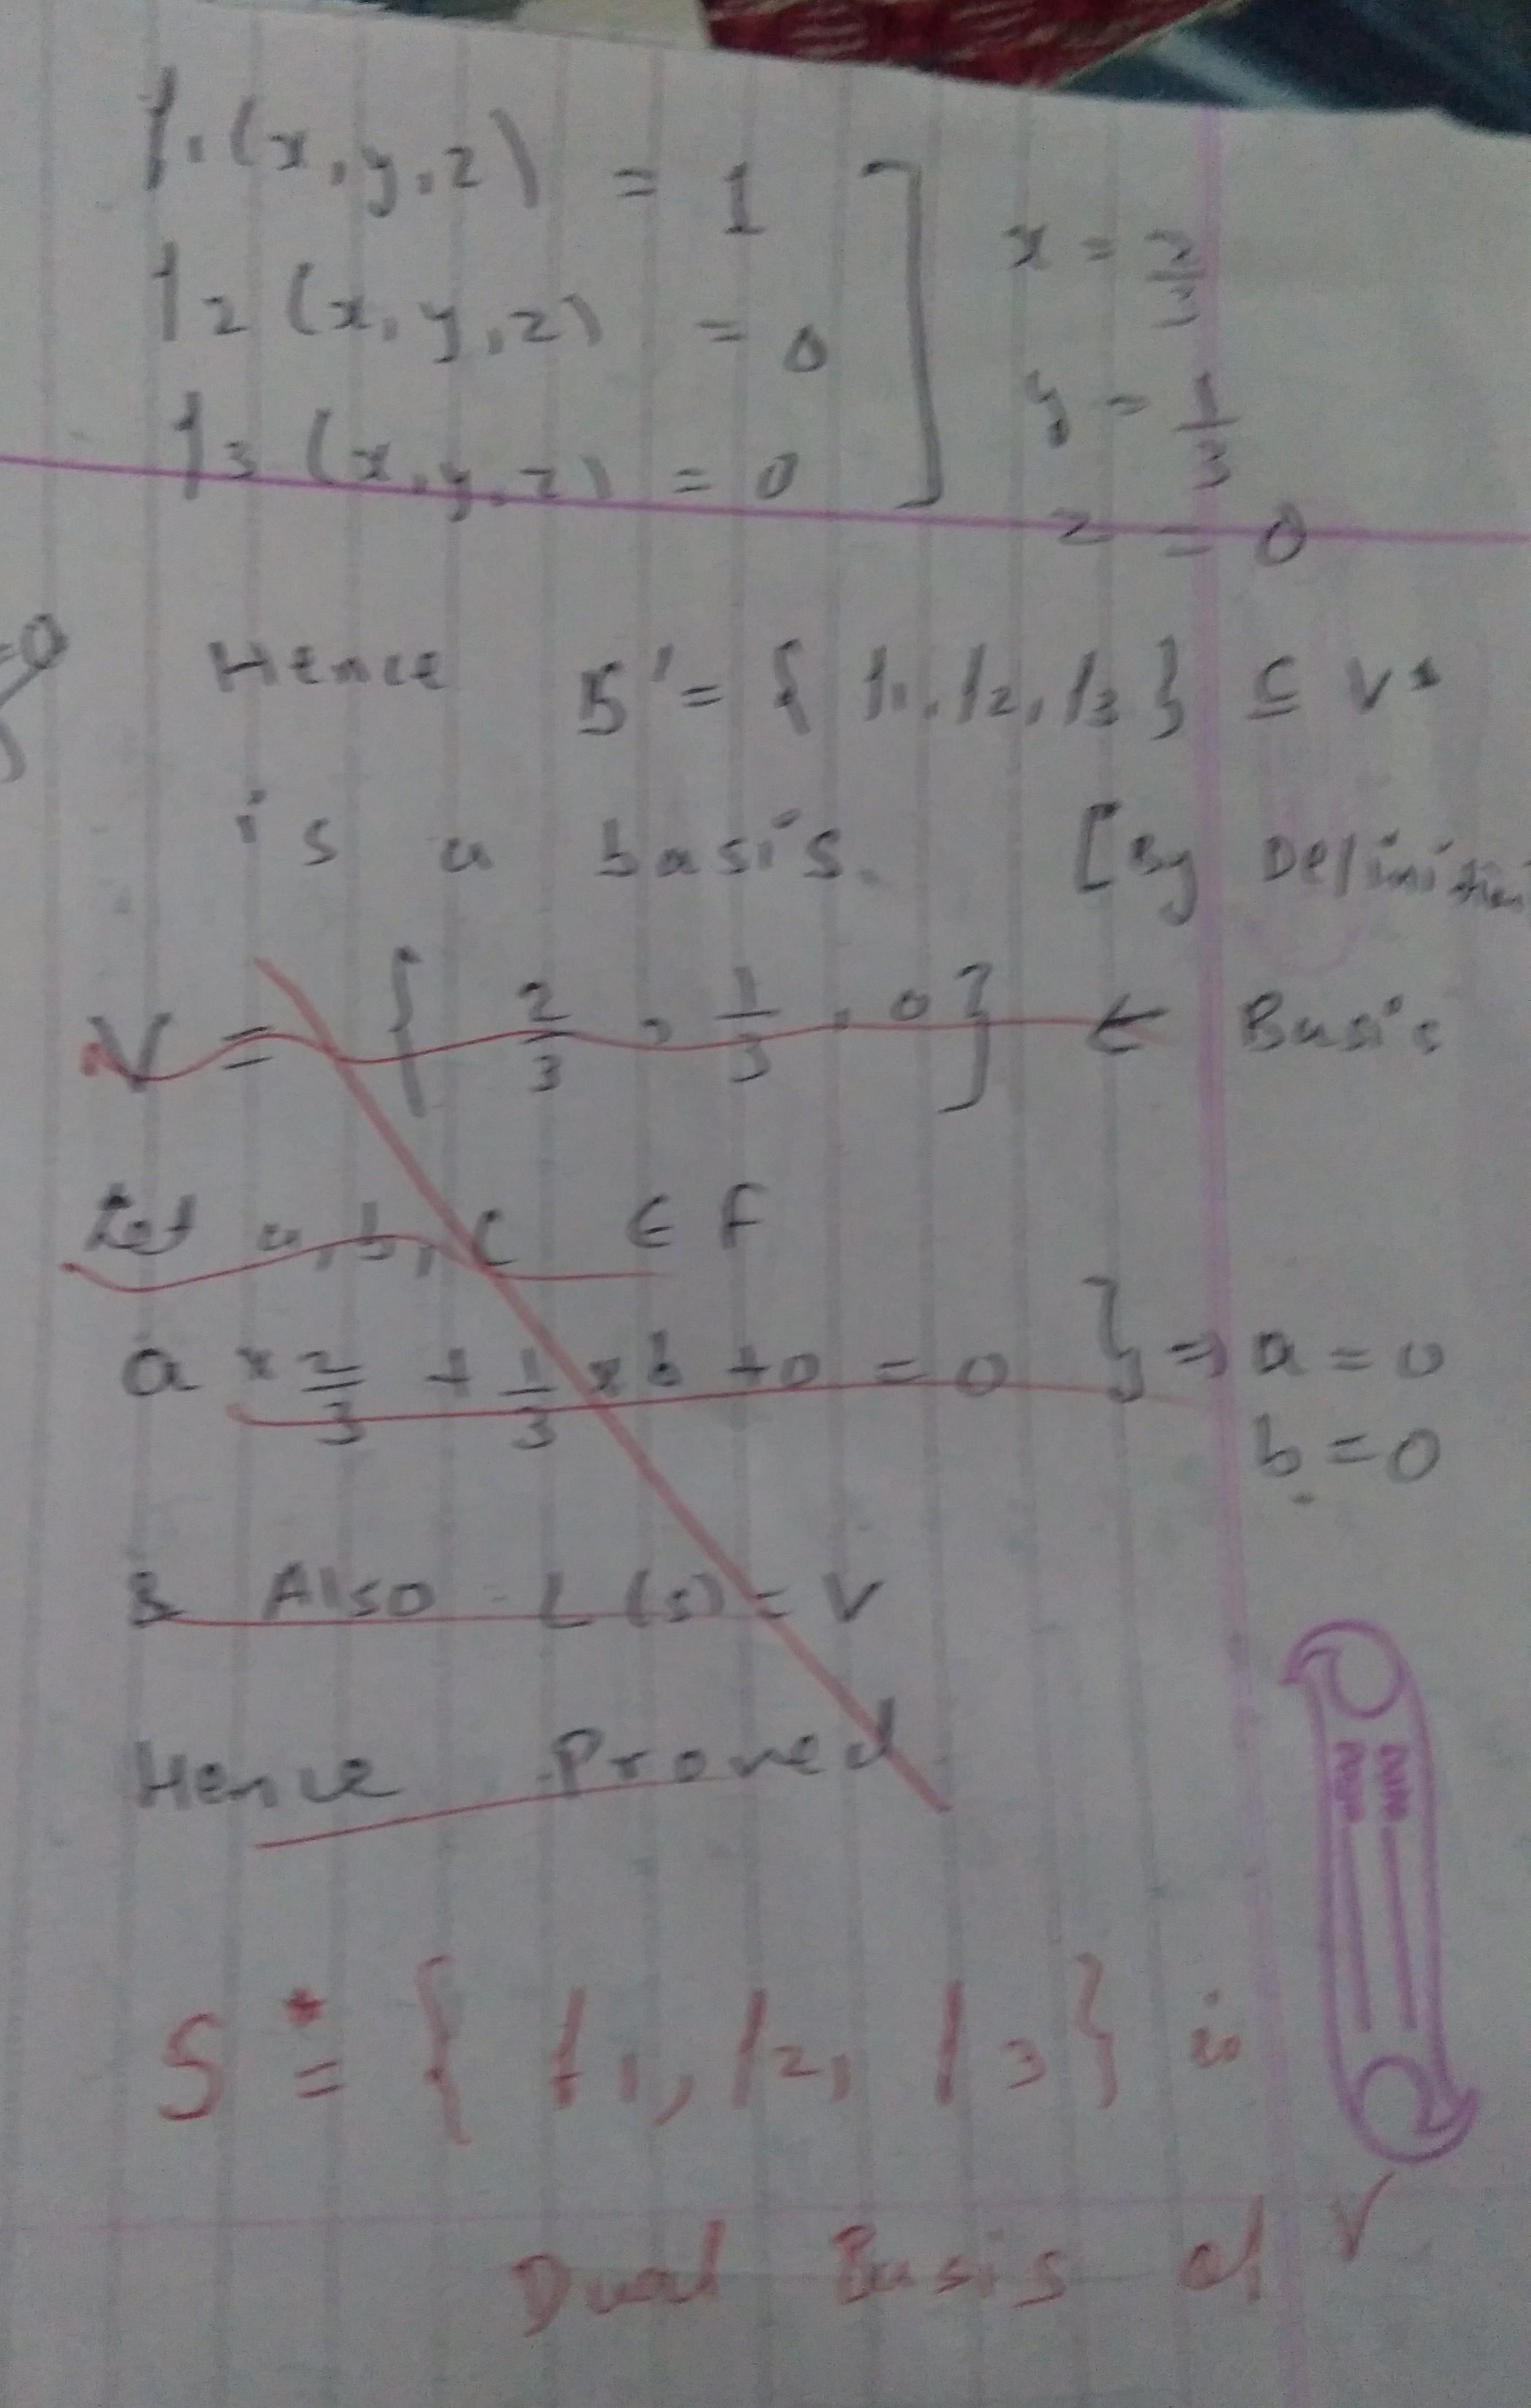 f1(x,y,z) = 1 ] x = 2/3
f2(x,y,z) = 0
y = 1/3
f3(x,y,z) = 0
z = 0
=0
Hence S' = { f1, f2, f3 } ⊆ V*
is a basis. [By Definition
V = { 2/3, 1/3, 0 } ← Basis
Let a, b, c ∈ F
a x 2/3 + 1/3 x b + 0 = 0 } ⇒ a = 0
b = 0
& Also L(S) = V
Hence Proved
Date
Page
S* = { f1, f2, f3 } is
Dual Basis of V